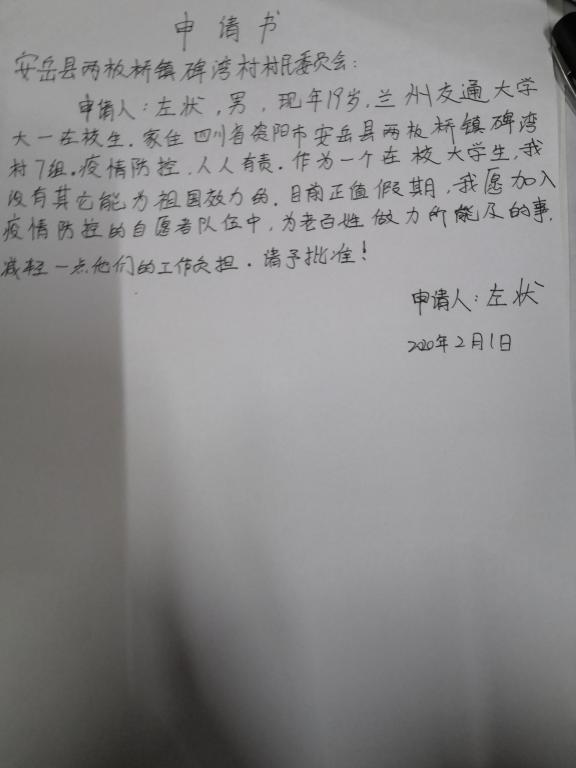 申请书
安岳县两板桥镇碑湾村村民委员会:
申请人:左状,男,现年19岁,兰州交通大学
大一在校生.家住四川省资阳市安岳县两板桥镇碑湾
村7组.疫情防控,人人有责.作为一个在校大学生,我
没有其它能为祖国效力的.目前正值假期,我愿加入
疫情防控的自愿者队伍中,为老百姓做力所能及的事.
减轻一点他们的工作负担.请予批准!
申请人:左状
2020年2月1日